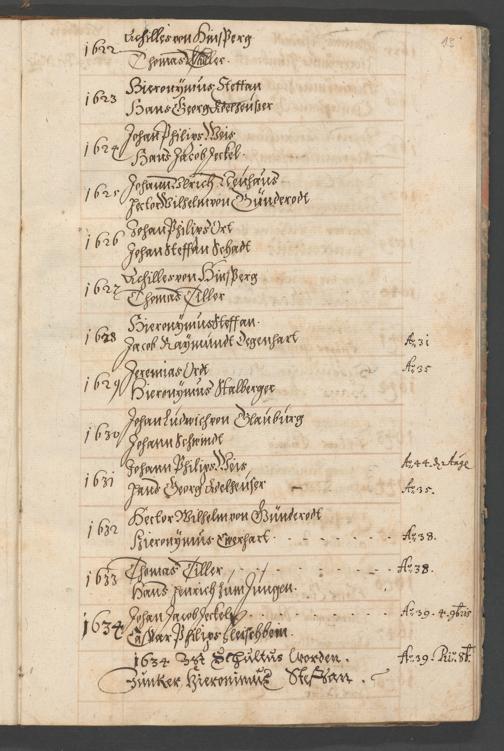 13
1622 Achilles von Hinsperg
Thomas Tiller.
1623 Hieronymus Steffan
Hans Georg Adelheuser
1624 Johan Philips Weis
Hans Jacob Jeckel
1625 Johann Ulrich Neuhaus
Hector Wilhelm von Günderodt
1626 Johan Philips Ort
Johan Steffan Schadt
1627 Achilles von Hinsperg
Thomas Tiller
1628 Hieronymus Steffan.
Jacob Raymundt Degenhart Ao 31
1629 Jeremias Ordt Ao 35
Hieronymus Stalberger
1630 Johan Ludwich von Glauburg
Johann Schmidt
1631 Johann Philips Weis Ao 44.
Hans Georg Adelheuser Ao 35.
1632 Hector Wilhelm von Günderodt
Hieronymus Eberhart Ao 38.
1633 Thomas Tiller Ao 38.
Hans Henrich zum Jungen.
1634 Johan Jacob Jeckel Ao 39. 4. 9bris
Caspar Philips Fleischbein.
1634 Ist Schultus worden. Ao 39.
Junker Hieronimus Steffan.